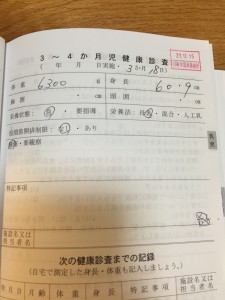 3～4か月児健康診査
(　年　月　日実施・3か月18日)
体重 6300 g 身長 60.9 cm
胸囲 cm 頭囲 cm
栄養状態：良・要指導 栄養法：母乳・混合・人工乳
股関節開排制限：なし・あり
健康・要観察
特記事項
施設名又は
担当者名
次の健康診査までの記録
(自宅で測定した身長・体重も記入しましょう。)
年月日 月齢 体重 身長 特記事項 施設名又は
担当者名